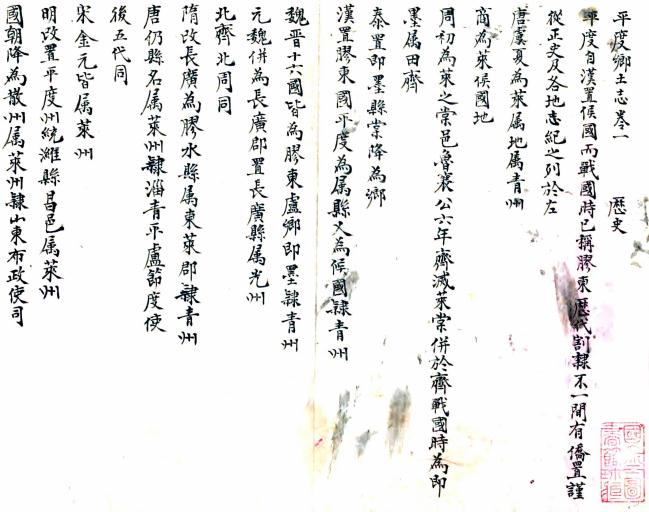 平度鄉土志卷一　　　歷史
平度自漢置侯國而戰國時已稱膠東歷代割隸不一間有僑置謹
從正史及各地志紀之列於左
唐虞夏為萊属地属青州
商為萊侯國地
周初為萊之棠邑魯襄公六年齊滅萊棠併於齊戰國時為即
墨属田齊
秦置即墨縣棠降為鄉
漢置膠東國平度為属縣又為侯國隸青州
魏晋十六國皆為膠東盧鄉即墨隸青州
元魏併為長廣郡置長廣縣属光州
北齊北周同
隋改長廣為膠水縣属東萊郡隸青州
唐仍縣名属萊州隸淄青平盧節度使
後五代同
宋金元皆属萊州
明改置平度州統濰縣昌邑属萊州
國朝降為散州属萊州隸山東布政使司